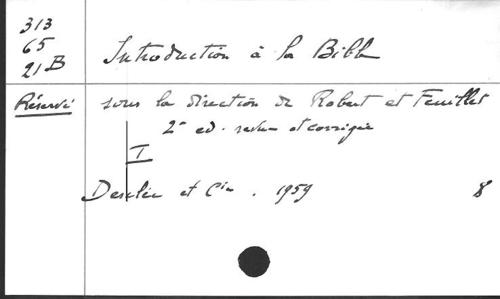 313
65
21 B
Introduction à la Bible
Réservé
sous la direction de Robert et Feuillet
2e ed. revue et corrigée
I
Desclée et Cie. 1959 8